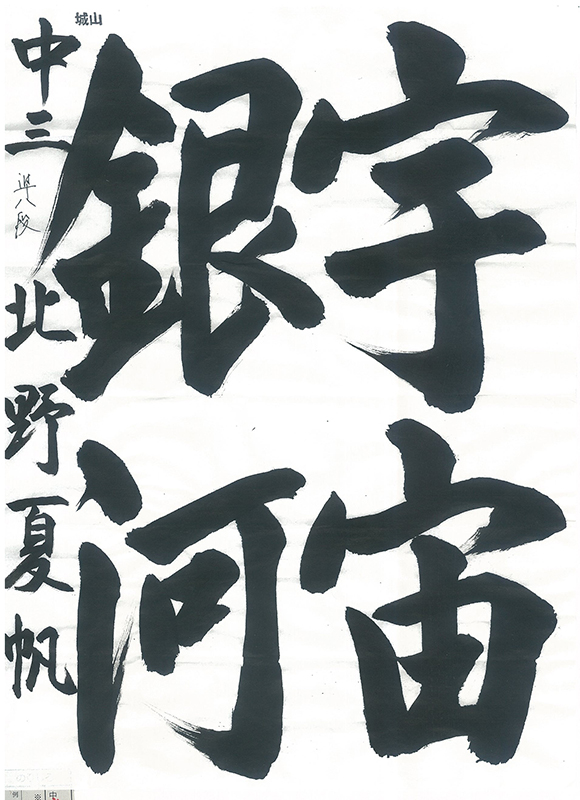 宇宙
銀河
中三 準八段 北野夏帆
城山
中
例
※